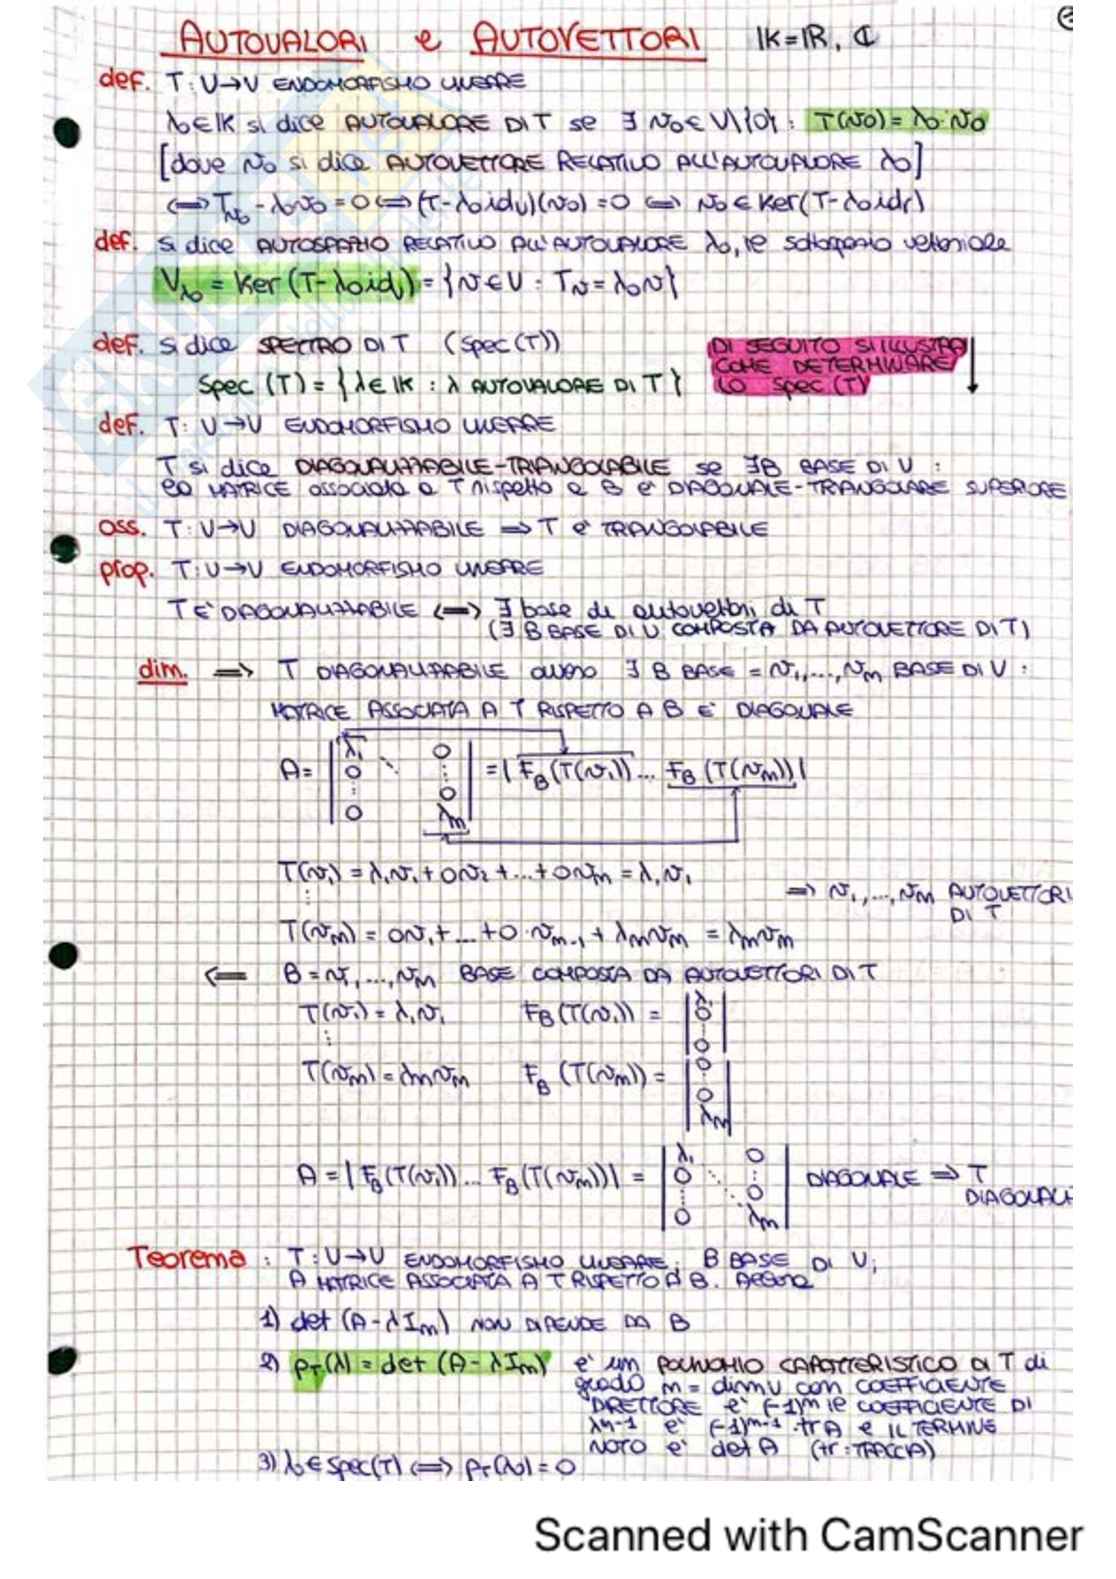 AUTOVALORI e AUTOVETTORI IK=IR, ℂ
def. T: V→V ENDOMORFISMO LINEARE
λ₀∈IK si dice AUTOVALORE DI T se ∃ v₀∈V\{0} : T(v₀)=λ₀·v₀
[dove v₀ si dice AUTOVETTORE RELATIVO ALL'AUTOVALORE λ₀]
⟺ Tv₀ - λ₀v₀ = 0 ⟺ (T-λ₀idv)(v₀) = 0 ⟺ v₀ ∈ Ker(T-λ₀idv)
def. si dice AUTOSPAZIO RELATIVO ALL'AUTOVALORE λ₀, le sottospazio vettoriale
Vλ₀ = Ker (T-λ₀idv) = {v∈V : Tv = λ₀v}
def. si dice SPETTRO DI T (Spec(T))
Spec (T) = {λ∈IK : λ AUTOVALORE DI T}
DI SEGUITO SI ILLUSTRA
COME DETERMINARE
LO Spec (T)
def. T: V→V ENDOMORFISMO LINEARE
T si dice DIAGONALIZZABILE-TRIANGOLABILE se ∃B BASE DI V :
la MATRICE associata a T rispetto a B e' DIAGONALE-TRIANGOLARE SUPERIORE
oss. T: V→V DIAGONALIZZABILE ⟹ T e' TRIANGOLABILE
prop. T: V→V ENDOMORFISMO LINEARE
T E' DIAGONALIZZABILE ⟺ ∃ base di autovettori di T
(∃ B BASE DI V COMPOSTA DA AUTOVETTORE DI T)
dim. ⟹ T DIAGONALIZZABILE ovvero ∃ B BASE = v₁,...,vm BASE DI V :
MATRICE ASSOCIATA A T RISPETTO A B E' DIAGONALE
A = | λ₁ 0 |
| 0 ⋱ ⋮ |
| ⋮ 0 |
| 0 λm | = | F_B(T(v₁)) ... F_B(T(vm)) |
T(v₁) = λ₁v₁ + 0v₂ + ... + 0vm = λ₁v₁
⋮
⟹ v₁,...,vm AUTOVETTORI
DI T
T(vm) = 0v₁ + ... + 0·vm-1 + λmvm = λmvm
⟸ B = v₁,...,vm BASE COMPOSTA DA AUTOVETTORI DI T
T(v₁) = λ₁v₁ F_B(T(v₁)) = | λ₁ 0 ⋮ 0 |
⋮
T(vm) = λmvm F_B(T(vm)) = | 0 ⋮ 0 λm |
A = | F_B(T(v₁)) ... F_B(T(vm)) | = | λ₁ 0 |
| 0 ⋱ ⋮ |
| ⋮ ⋱ 0 |
| 0 λm | DIAGONALE ⟹ T
DIAGONALI
Teorema : T: V→V ENDOMORFISMO LINEARE; B BASE DI V;
A MATRICE ASSOCIATA A T RISPETTO A B. Allora
1) det (A-λIm) NON DIPENDE DA B
2) p_T(λ) = det (A-λIm) e' un POLINOMIO CARATTERISTICO DI T di
grado m = dimV con COEFFICIENTE
DIRETTORE e' (-1)^m le COEFFICIENTE DI
λ^m-1 e' (-1)^m-1·trA e IL TERMINE
NOTO e' det A (tr: TRACCIA)
3) λ₀∈Spec(T) ⟺ p_T(λ₀) = 0
Scanned with CamScanner